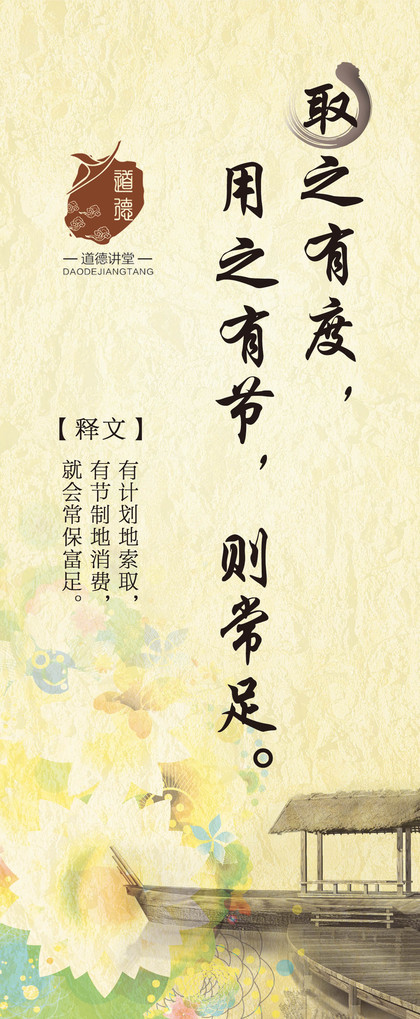 取之有度，
用之有节，则常足。
道德
道德讲堂
DAODEJIANGTANG
【释文】
有计划地索取，
有节制地消费，
就会常保富足。